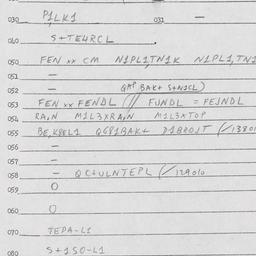 030 P1LK1 031 —
040 S+TE4RCL .
050 FEN xx CM N1PL1,TN1K N1PL1,TN1
051 —
052 — GAP BAK+ S+N1CL)
053 FEN xx FENDL (// FUNDL = FEJNDL
054 RAIN M1L3XRAIN M1L3XTOP
055 BE,KBEL1 Q6B1BAK+ D1BROJT (/1380
056 —
057 —
058 — QK+ULNTEPL (/129010
059 O
060 O
070 TEPA-L1
080 S+1SO-L1